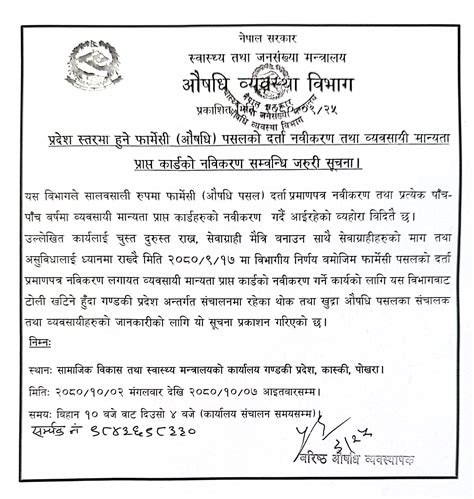 नेपाल सरकार
स्वास्थ्य तथा जनसंख्या मन्त्रालय
औषधि व्यवस्था विभाग
प्रकाशित मिति /०९/२५
प्रदेश स्तरमा हुने फार्मेसी (औषधि) पसलको दर्ता नवीकरण तथा व्यवसायी मान्यता
प्राप्त कार्डको नविकरण सम्वन्धि जरुरी सूचना।
यस विभागले सालवसाली रुपमा फार्मेसी (औषधि पसल) दर्ता प्रमाणपत्र नवीकरण तथा प्रत्येक पाँच-
पाँच वर्षमा व्यवसायी मान्यता प्राप्त कार्डहरुको नवीकरण गर्दै आईरहेको व्यहोरा विदितै छ।
उल्लेखित कार्यलाई चुस्त दुरुस्त राख्न, सेवाग्राही मैत्रि बनाउन साथै सेवाग्राहीहरुको माग तथा
असुविधालाई ध्यानमा राख्दै मिति २०८०/९/१७ मा विभागीय निर्णय वमोजिम फार्मेसी पसलको दर्ता
प्रमाणपत्र नविकरण लगायत व्यवसायी मान्यता प्राप्त कार्डको नवीकरण गर्ने कार्यको लागि यस विभागवाट
टोली खटिने हुँदा गण्डकी प्रदेश अन्तर्गत संचालनमा रहेका थोक तथा खुद्रा औषधि पसलका संचालक
तथा व्यवसायीहरुको जानकारीको लागि यो सूचना प्रकाशन गरिएको छ।
निम्नः
स्थानः सामाजिक विकास तथा स्वास्थ्य मन्त्रालयको कार्यालय गण्डकी प्रदेश, कास्की, पोखरा।
मितिः २०८०/१०/०२ मंगलवार देखि २०८०/१०/०७ आइतवारसम्म।
समयः बिहान १० बजे वाट दिउसो ४ बजे (कार्यालय संचालन समयसम्म)
सम्पर्क नं ९८४२६९८३३०
वरिष्ठ औषधि व्यवस्थापक